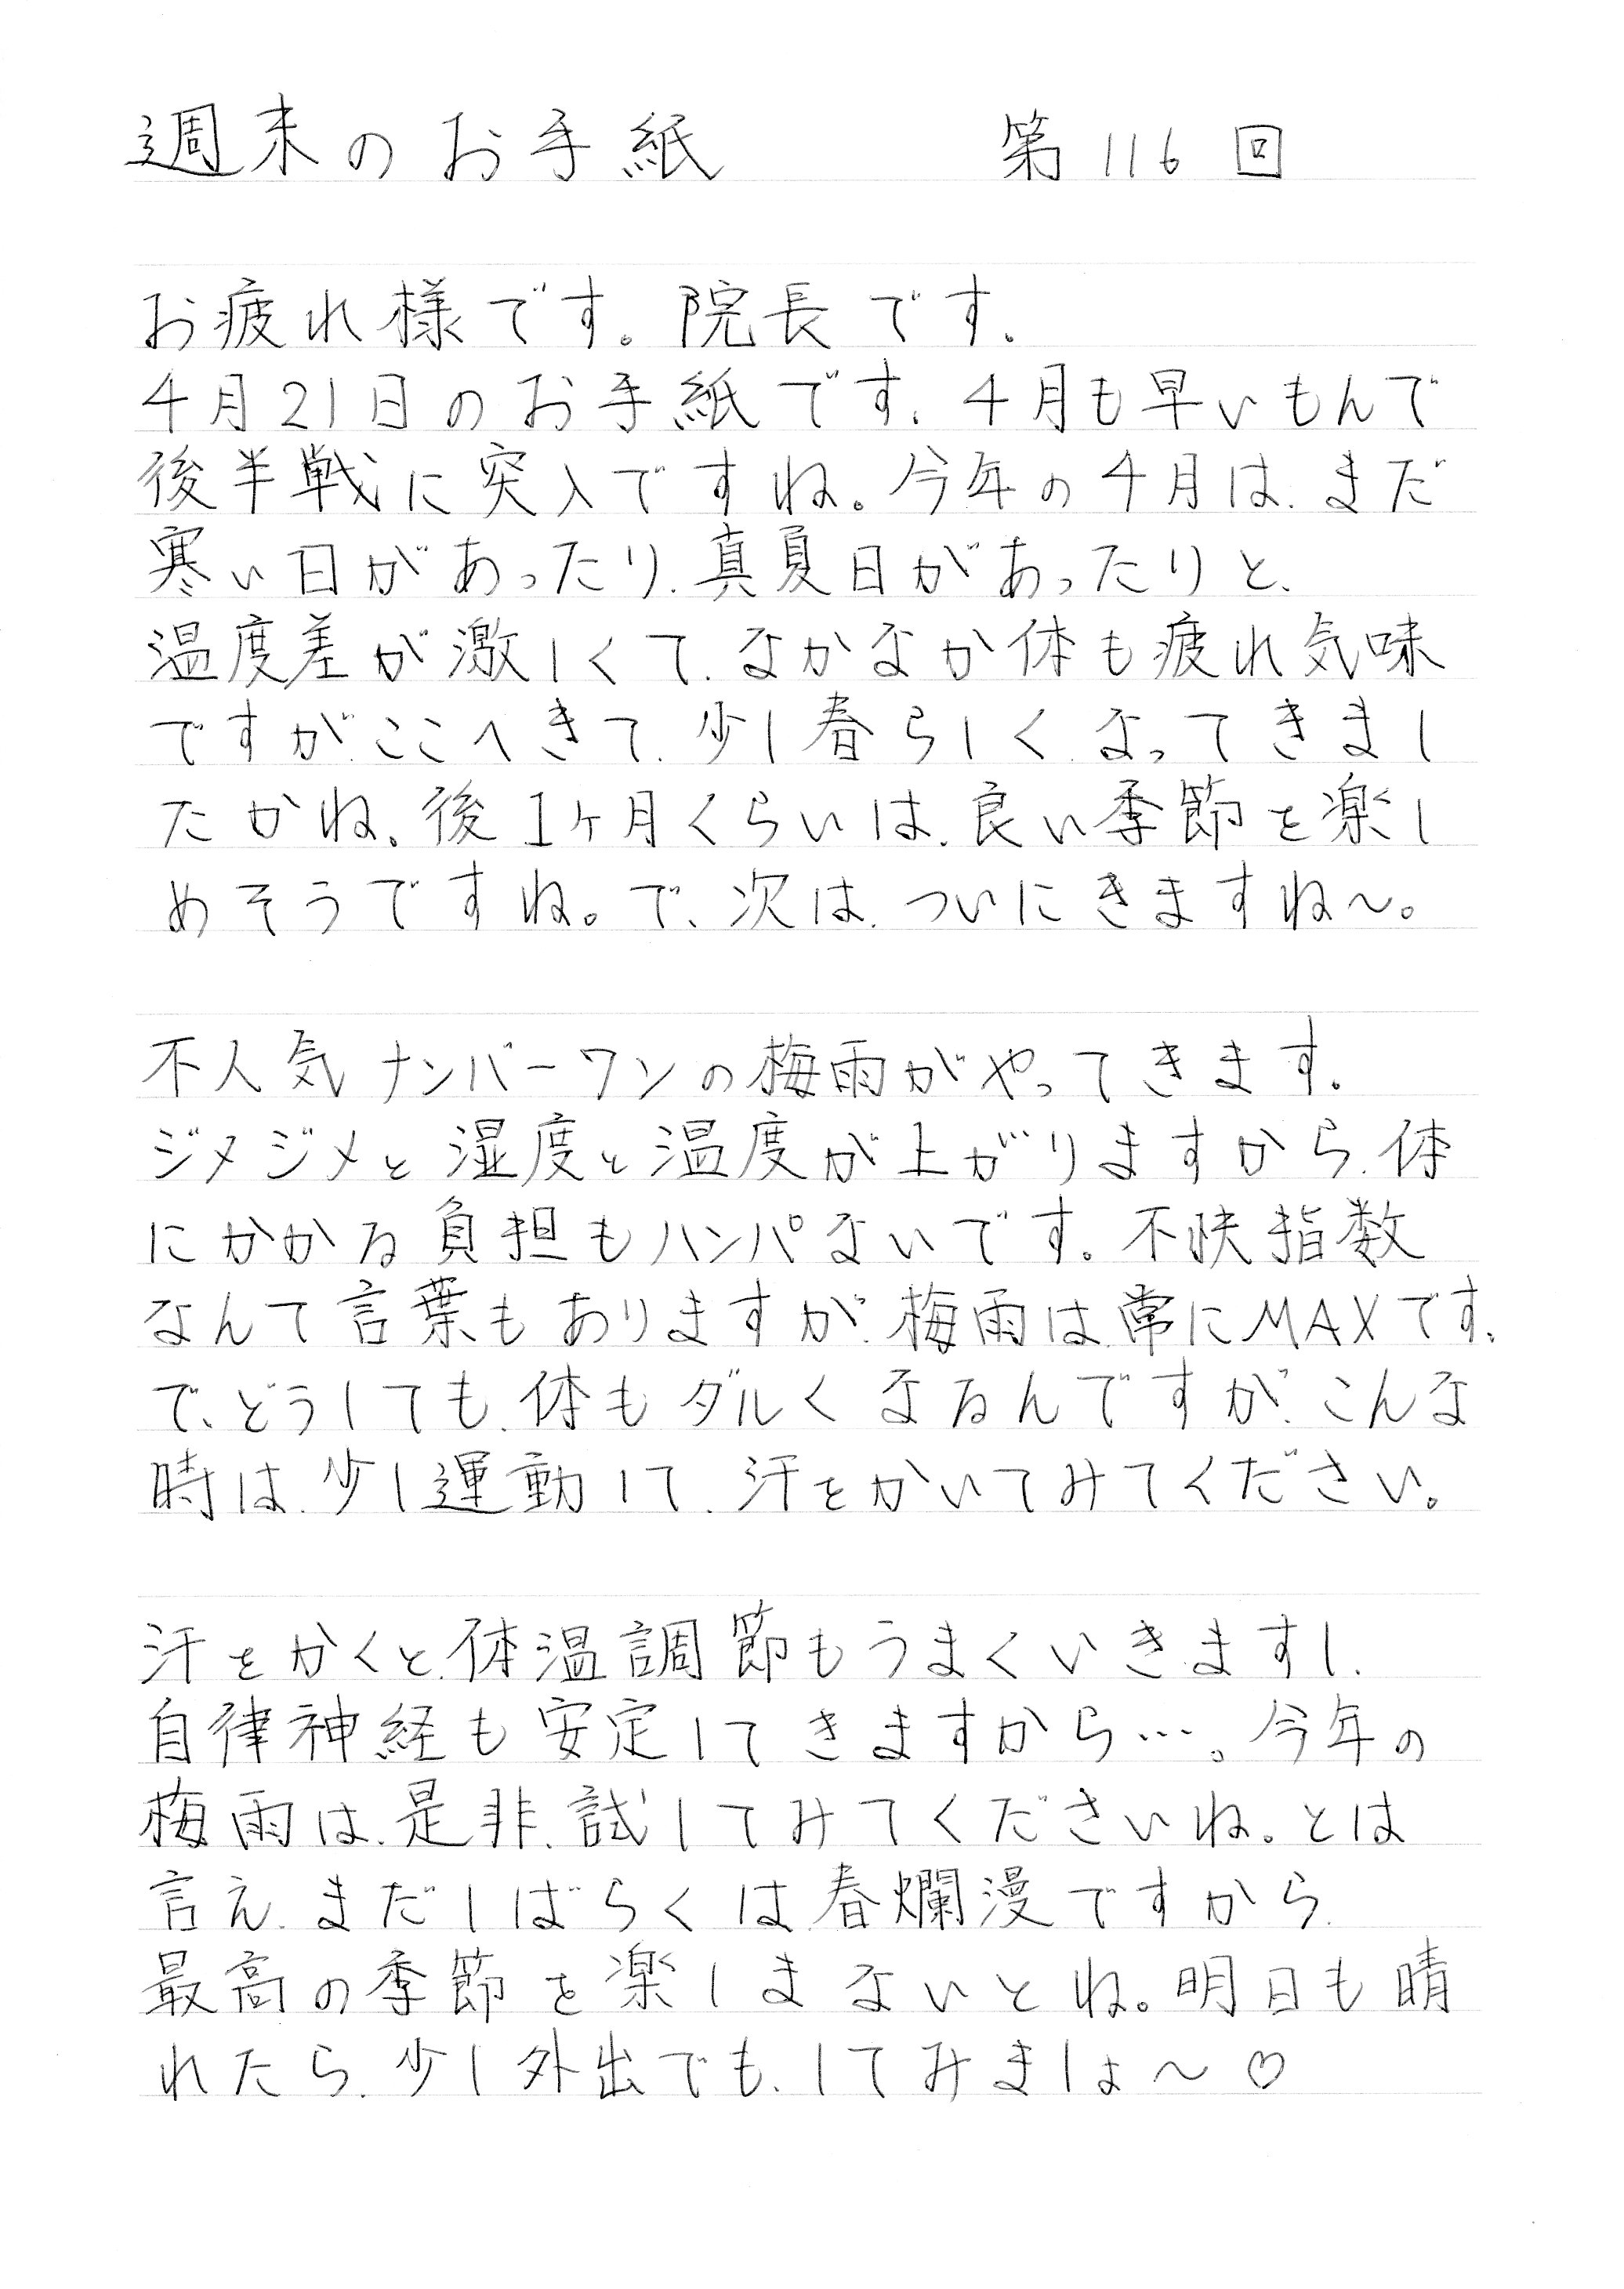 週末のお手紙　第116回
お疲れ様です。院長です。
4月21日のお手紙です。4月も早いもんで
後半戦に突入ですね。今年の4月は、まだ
寒い日があったり、真夏日があったりと、
温度差が激しくて、なかなか体も疲れ気味
ですが、ここへきて、少し春らしくなってきまし
たかね。後1ヶ月くらいは、良い季節を楽し
めそうですね。で、次は、ついにきますね〜。
不人気ナンバーワンの梅雨がやってきます。
ジメジメと湿度と温度が上がりますから、体
にかかる負担もハンパないです。不快指数
なんて言葉もありますが、梅雨は、常にMAXです。
で、どうしても、体もダルくなるんですが、こんな
時は、少し運動して、汗をかいてみてください。
汗をかくと、体温調節もうまくいきますし、
自律神経も安定してきますから…。今年の
梅雨は、是非、試してみてくださいね。とは
言え、まだしばらくは、春爛漫ですから、
最高の季節を楽しまないとね。明日も晴
れたら、少し外出でも、してみましょ〜♡